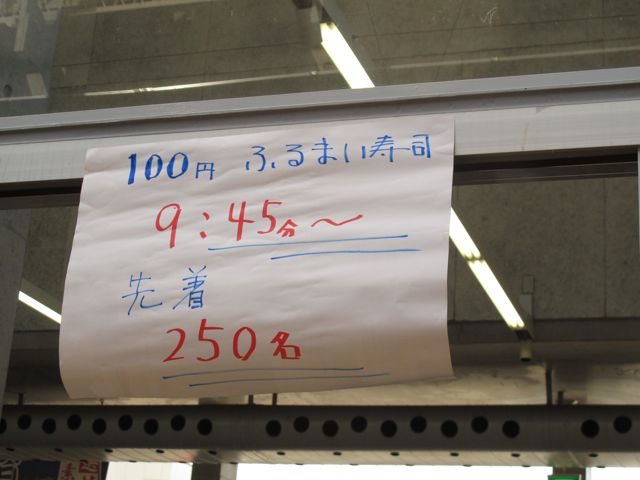 100円 ふるまい寿司
9:45分～
先着
250名